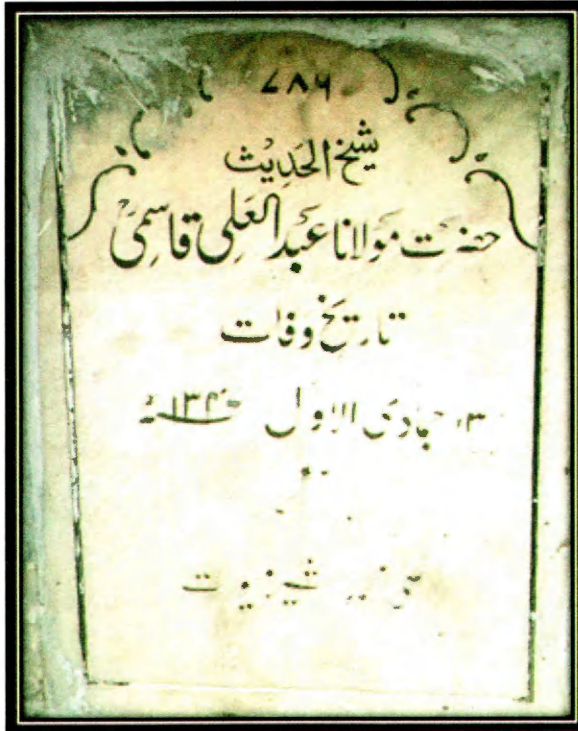 ۷۸۶
شیخ الحدیث
حضرت مولانا عبد العلی قاسمیؒ
تاریخ وفات
۱۳ جمادی الاول